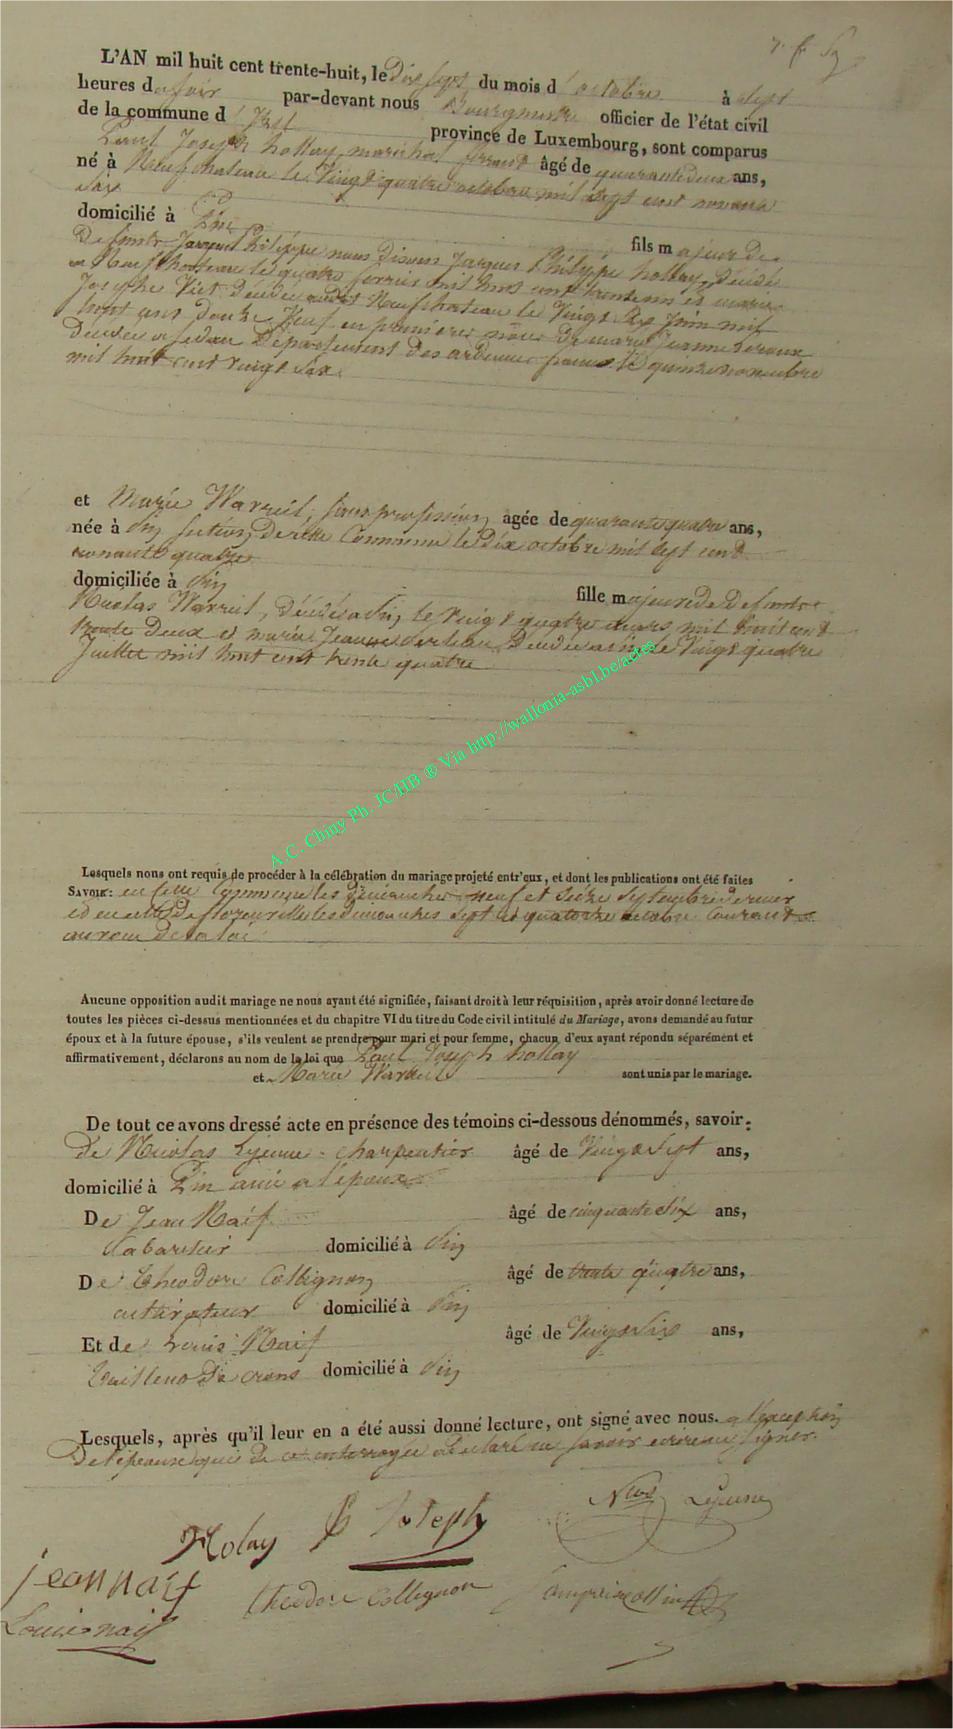 L'AN mil huit cent trente-huit, le Dix sept du mois d'octobre à sept
heures du soir par-devant nous Bourgmestre officier de l'état civil
de la commune d' province de Luxembourg, sont comparus
Paul Joseph hollay, marechal ferrant âgé de quarante deux ans,
né à Neufchateau le Vingt quatre octobre mil sept cent nonante
six
domicilié à Pin fils majeur de
Defunts Jacques Philippe nous disons Jacques Philippe hollay, décédé
a Neufchateau le quatre fevrier mil huit cent trente six et marie
Josephe Viet décédée audit Neufchateau le Vingt Six Juin mil
huit cent douze Veuf en premiere noce de marie Jeanne
Décédée a sedan Département des ardennes france le quinze novembre
mil huit cent vingt six
et Marie Warreit, sans profession, agée de quarante quatre ans,
née à Pin section de cette Commune le dix octobre mil sept cent
nonante quatre
domiciliée à Pin fille majeure de Defunts
Nicolas Warreit, décédé a Pin le Vingt quatre mars mil huit cent
trente Deux et marie Jeanne Décédée a Pin le Vingt quatre
Juillet mil huit cent trente quatre
A.C. Chiny Ph. JC/HB ® Via http://wallonia-asbl.be/actes
Lesquels nous ont requis de procéder à la célébration du mariage projeté entr'eux, et dont les publications ont été faites
SAVOIR: en cette Commune les dimanches neuf et seize Septembre dernier
et en celle de florenville les dimanches sept et quatorze octobre Courant
au vœu de la loi
Aucune opposition audit mariage ne nous ayant été signifiée, faisant droit à leur réquisition, après avoir donné lecture de
toutes les pièces ci-dessus mentionnées et du chapitre VI du titre du Code civil intitulé du Mariage, avons demandé au futur
époux et à la future épouse, s'ils veulent se prendre pour mari et pour femme, chacun d'eux ayant répondu séparément et
affirmativement, déclarons au nom de la loi que Paul Joseph hollay
et Marie Warreit sont unis par le mariage.
De tout ce avons dressé acte en présence des témoins ci-dessous dénommés, savoir:
De Nicolas Lejeune charpentier âgé de Vingt Sept ans,
domicilié à Pin ami a l'époux
De Jean Naif âgé de cinquante Six ans,
Cabaretier domicilié à Pin
De Theodore Collignon âgé de trente quatre ans,
cultivateur domicilié à Pin
Et de Louis Naif âgé de Vingt Six ans,
domicilié à Pin
Lesquels, après qu'il leur en a été aussi donné lecture, ont signé avec nous. a l'exception
De l'épouse qui de ce interrogée a declaré ne savoir ecrire ni signer.
Nlas Lejeune
Holay P Joseph
jean naif
theodore Collignon
Louis naif